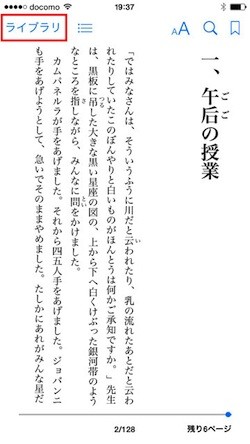 docomo 19:37
ライブラリ AA
一、午後の授業
ごご
「ではみなさんは、そういうふうに川だと云われたり、乳の流れたあとだと云わ
い
れたりしていたこのぼんやりと白いものがほんとうは何かご承知ですか。」先生
は、黒板に吊した大きな黒い星座の図の、上から下へ白くけぶった銀河帯のよう
つる
なところを指しながら、みんなに問をかけました。
さ
とい
カムパネルラが手をあげました。それから四五人手をあげました。ジョバンニ
も手をあげようとして、急いでそのままやめました。たしかにあれがみんな星だ
2/128 残り6ページ